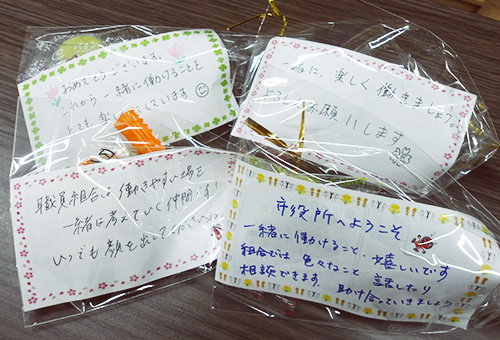 おめでとうございます
これから一緒に働けることを
とても楽しみにしています
一緒に、楽しく働きましょう。
よろしくお願いします
職員組合は働きやすい場を
一緒に考えていく仲間です!
いつでも顔を出してくださいね
市役所へようこそ
一緒に働けること、嬉しいです
組合では 色々なこと 話したり
相談できます。助け合っていきましょう